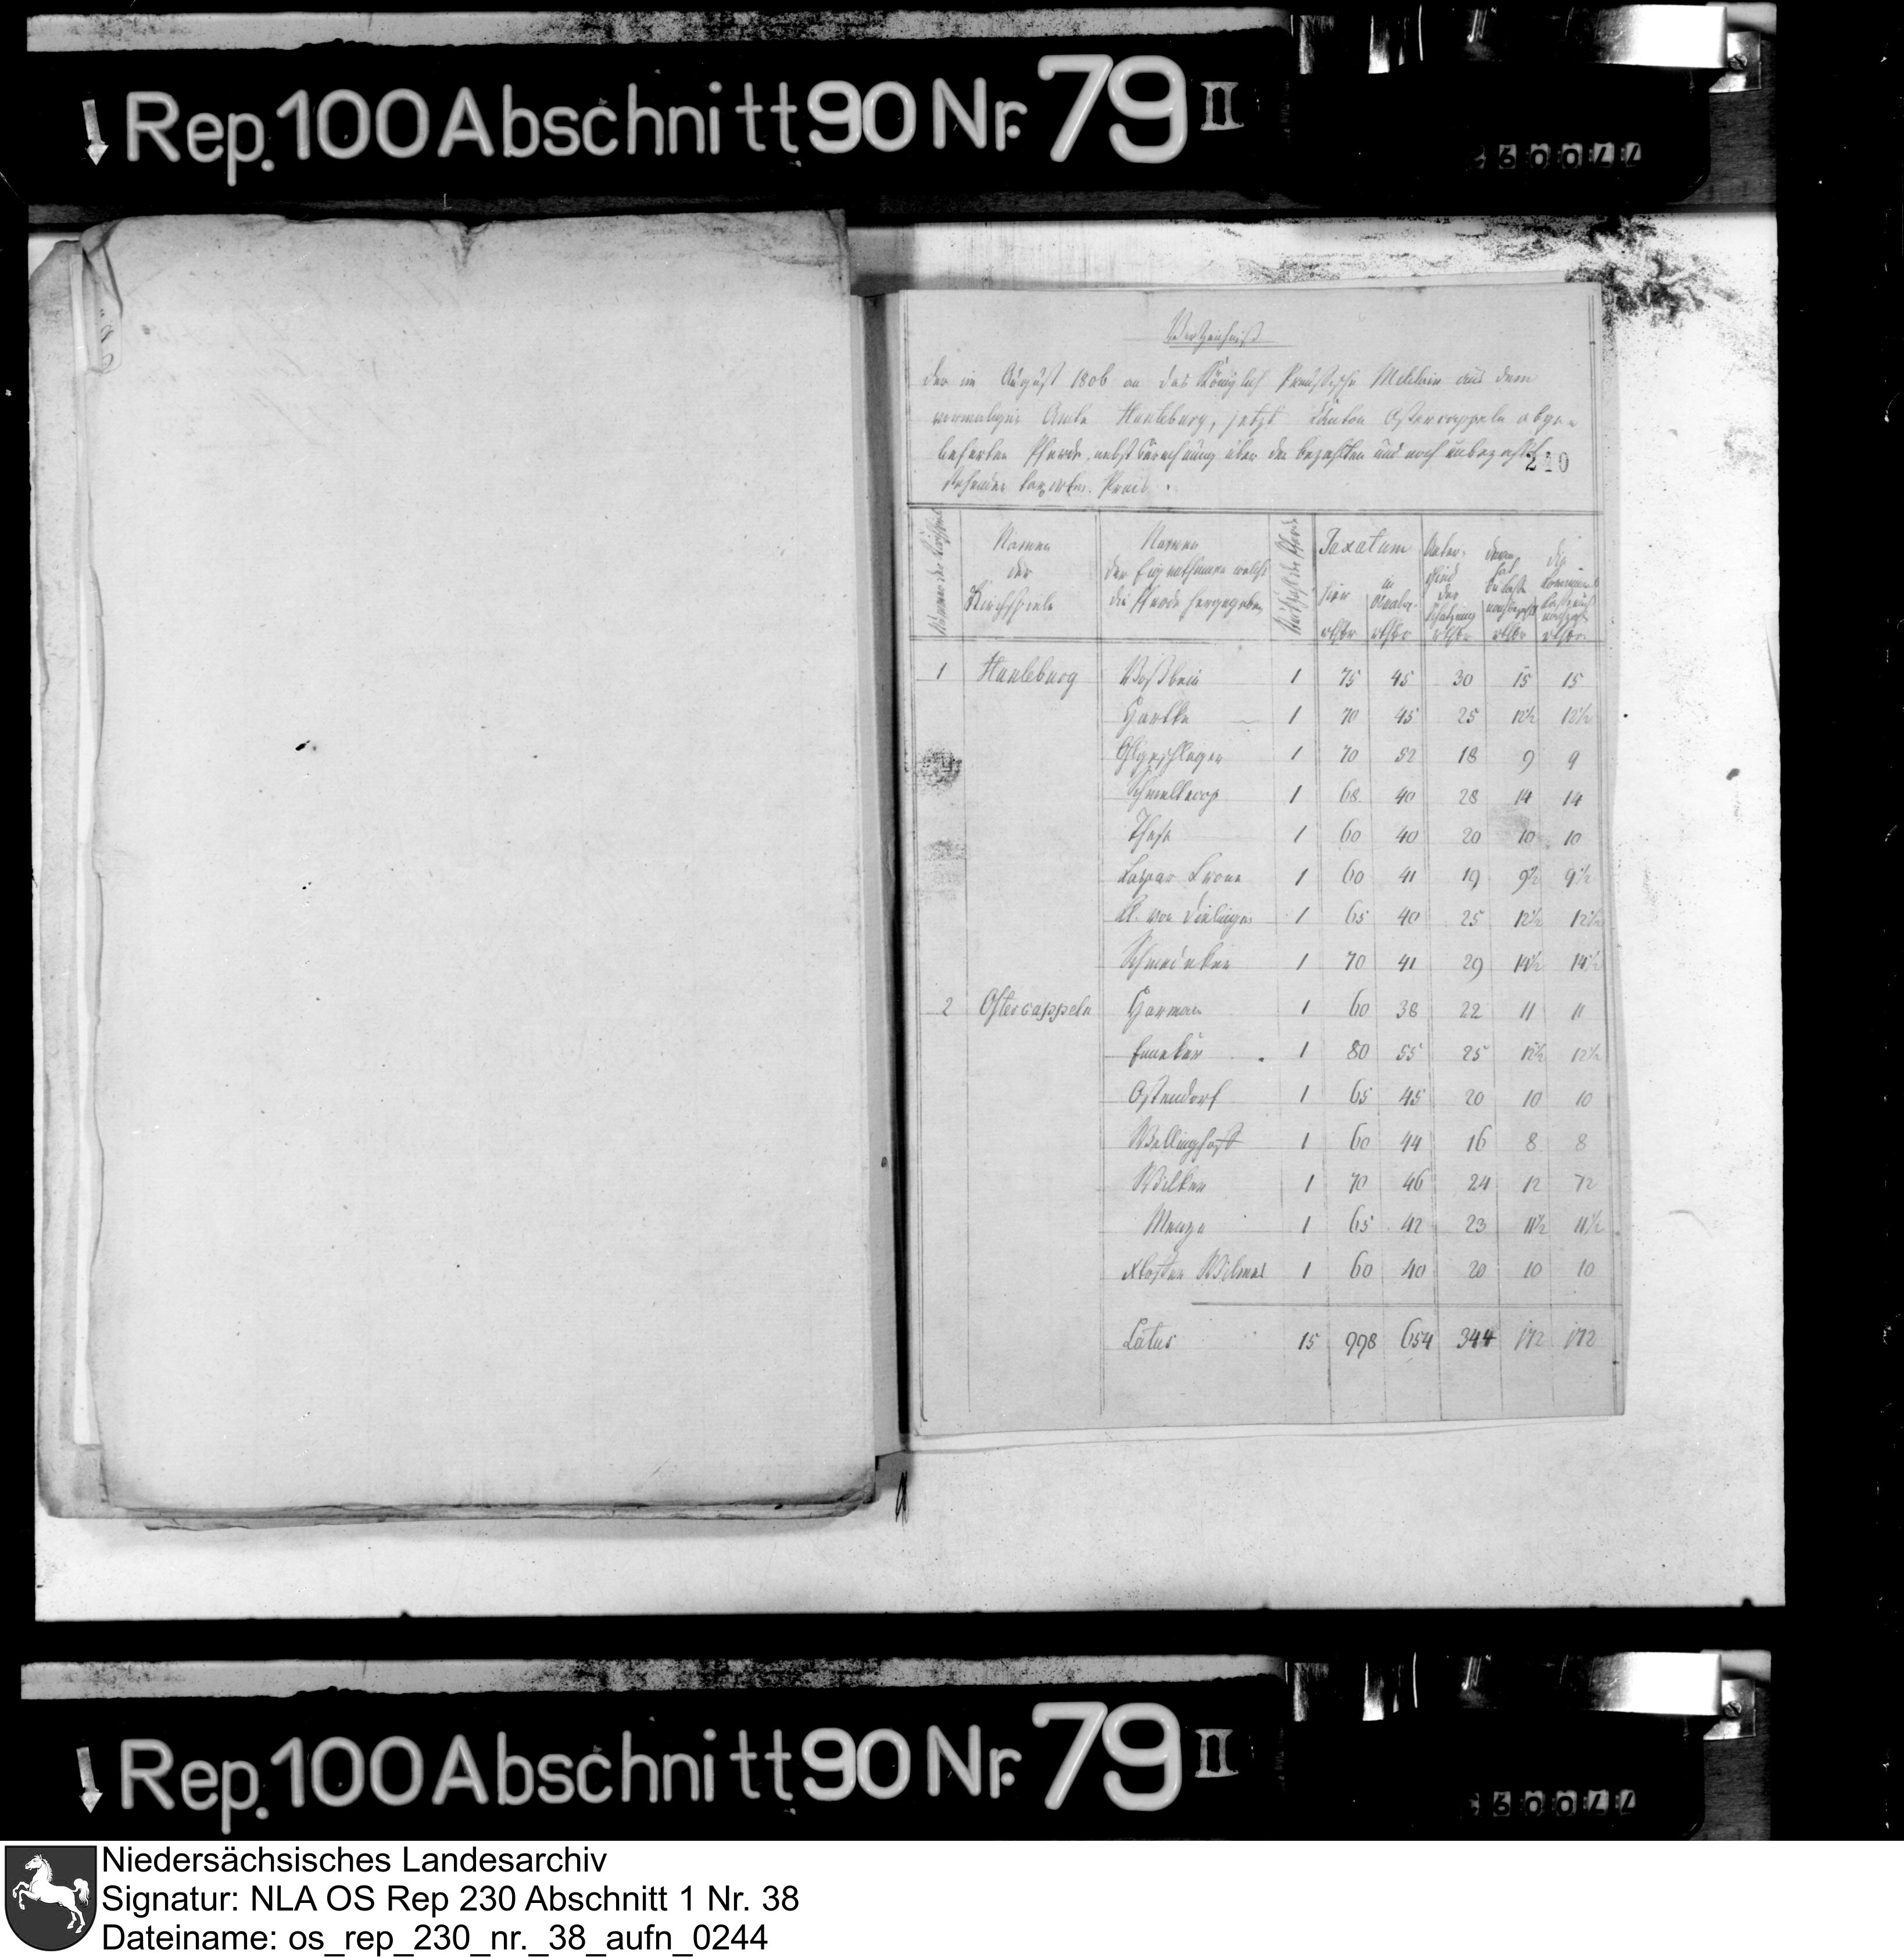 Rep. 100 Abschnitt 90 Nr. 79 II
Verzeichniß
der im August 1806 an das Königlich Preußische Militair aus dem
vormaligen Amte Hunteburg, jetzt Canton Ostercappeln abge-
lieferten Pferde, nebst Berechnung über den bezahlten und noch unbezahlt
240
stehenden Preis.
Nummer der Kirchspiele | Namen der Kirchspiele | Namen der Eigenthümer welche die Pferde hergegeben | der Pferde | Taxatum hier rthlr | in Osnabr. rthlr | Unter-schied der Schatzung rthlr | davon hat rthlr | die rthlr
1 Hunteburg Voßbein 1 75 45 30 15 15
Hartke 1 70 45 25 12½ 12½
Ohlgeschlager 1 70 52 18 9 9
Schmeltkop 1 68 40 28 14 14
1 60 40 20 10 10
Caspar Krone 1 60 41 19 9½ 9½
von Dielingen 1 65 40 25 12½ 12½
1 70 41 29 14½ 14½
2 Ostercappeln Harman 1 60 38 22 11 11
1 80 55 25 12½ 12½
Ostendorf 1 65 45 20 10 10
Wellinghoff 1 60 44 16 8 8
Wilker 1 70 46 24 12 12
1 65 42 23 11½ 11½
Kloster 1 60 40 20 10 10
Latus 15 998 654 344 172 172
Rep. 100 Abschnitt 90 Nr. 79 II
Niedersächsisches Landesarchiv
Signatur: NLA OS Rep 230 Abschnitt 1 Nr. 38
Dateiname: os_rep_230_nr._38_aufn_0244